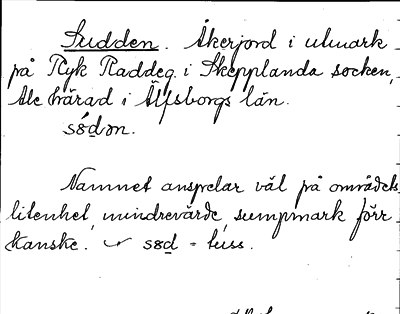 Sudden. Åkerjord i utmark
på Ryk Raddeg. i Skepplanda socken,
Ale härad i Älfsborgs län.
sådən.
Namnet anspelar väl på områdets
litenhet, mindrevärde, sumpmark förr
kanske. sød = tuss.